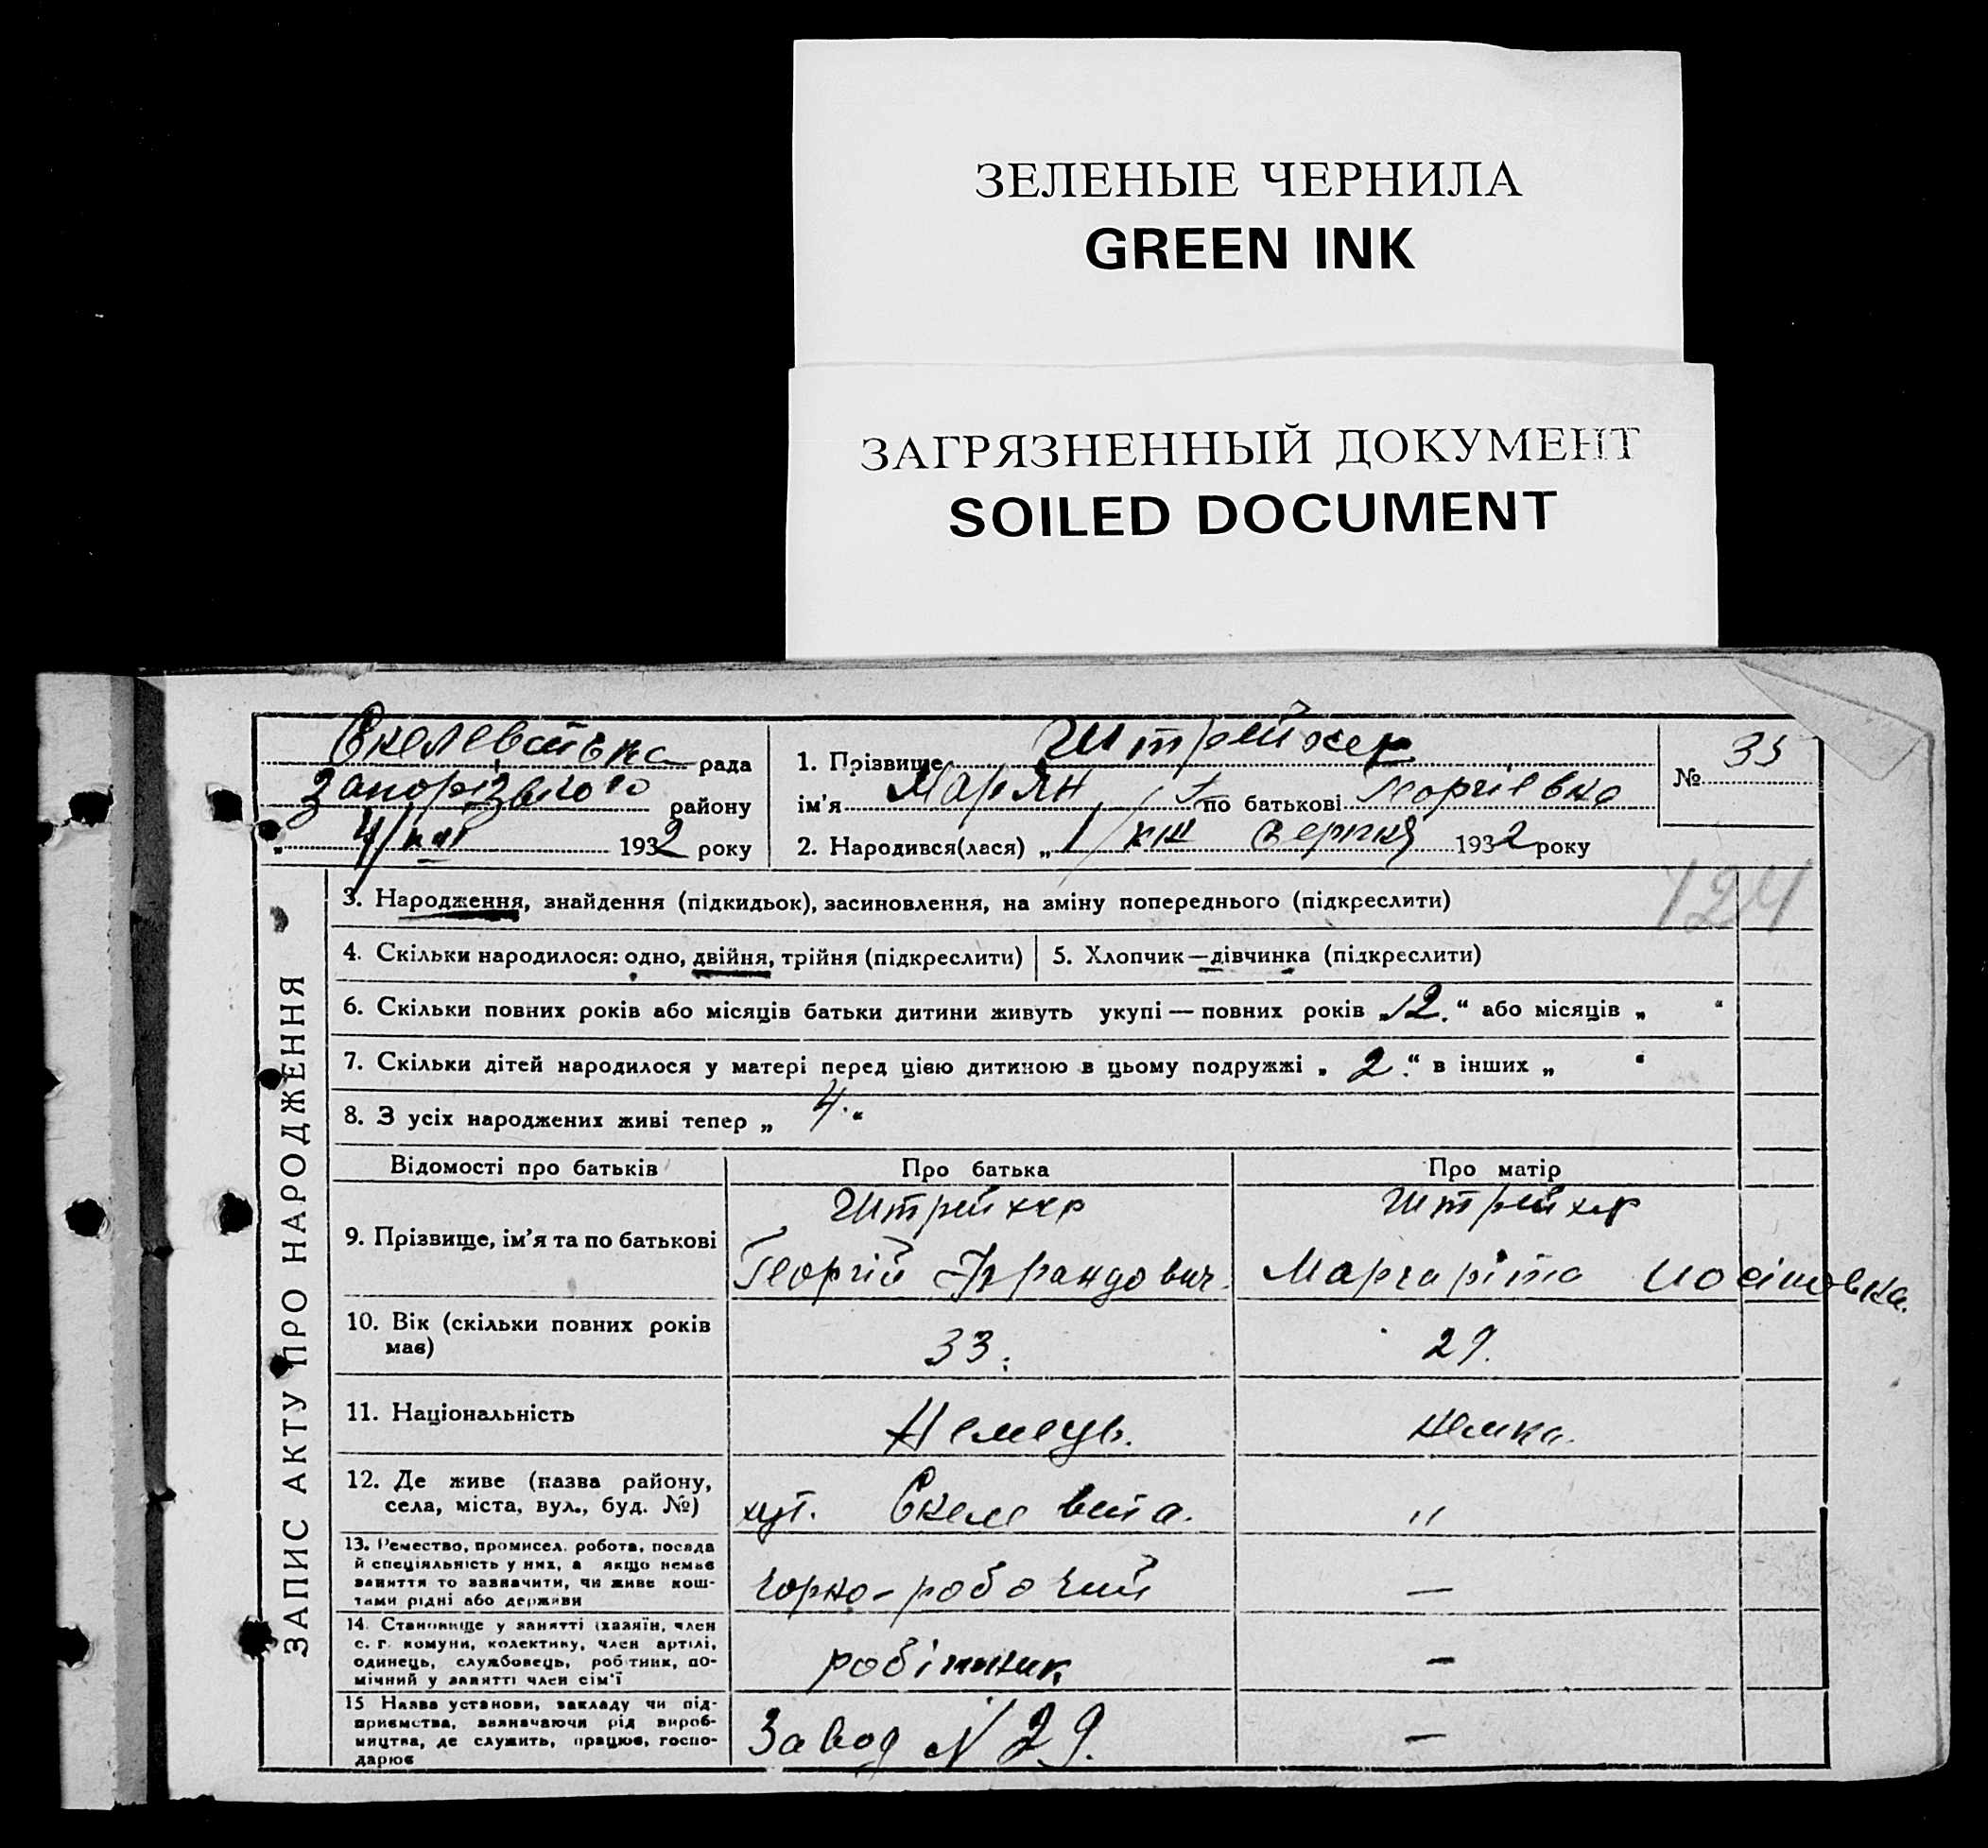 ЗЕЛЕНЫЕ ЧЕРНИЛА
GREEN INK
ЗАГРЯЗНЕННЫЙ ДОКУМЕНТ
SOILED DOCUMENT
ЗАПИС АКТУ ПРО НАРОДЖЕННЯ
рада
Запорізького району
1932 року
1. Прізвище Штрейхер
ім'я Марян по батькові Георгіевна
2. Народився(лася) „1/ Серпня 1932 року
№ 35
124
3. Народження, знайдення (підкидьок), засиновлення, на зміну попереднього (підкреслити)
4. Скільки народилося: одно, двійня, трійня (підкреслити)
5. Хлопчик—дівчинка (підкреслити)
6. Скільки повних років або місяців батьки дитини живуть укупі — повних років „12.“ або місяців „ “
7. Скільки дітей народилося у матері перед цією дитиною в цьому подружжі „2.“ в інших „ “
8. З усіх народжених живі тепер „4.“
Відомості про батьків
Про батька
Про матір
9. Прізвище, ім'я та по батькові
Штрейхер
Георгій
Штрейхер
Маргаріта
10. Вік (скільки повних років
має)
33.
29.
11. Національність
Немець.
немка.
12. Де живе (назва району,
села, міста, вул., буд. №)
хут.
"
13. Ремество, промисел, робота, посада
й спеціяльність у них, а якщо немає
заняття то зазначити, чи живе кош-
тами рідні або держави
горно-робочий
—
14. Становище у занятті (хазяїн, член
с. г. комуни, колективу, член артілі,
одинець, службовець, робітник, по-
мічний у занятті член сім'ї
робітник
—
15 Назва установи, закладу чи під-
приємства, зазначаючи рід вироб-
ництва, де служить, працює, госпо-
дарює
Завод N 29.
—